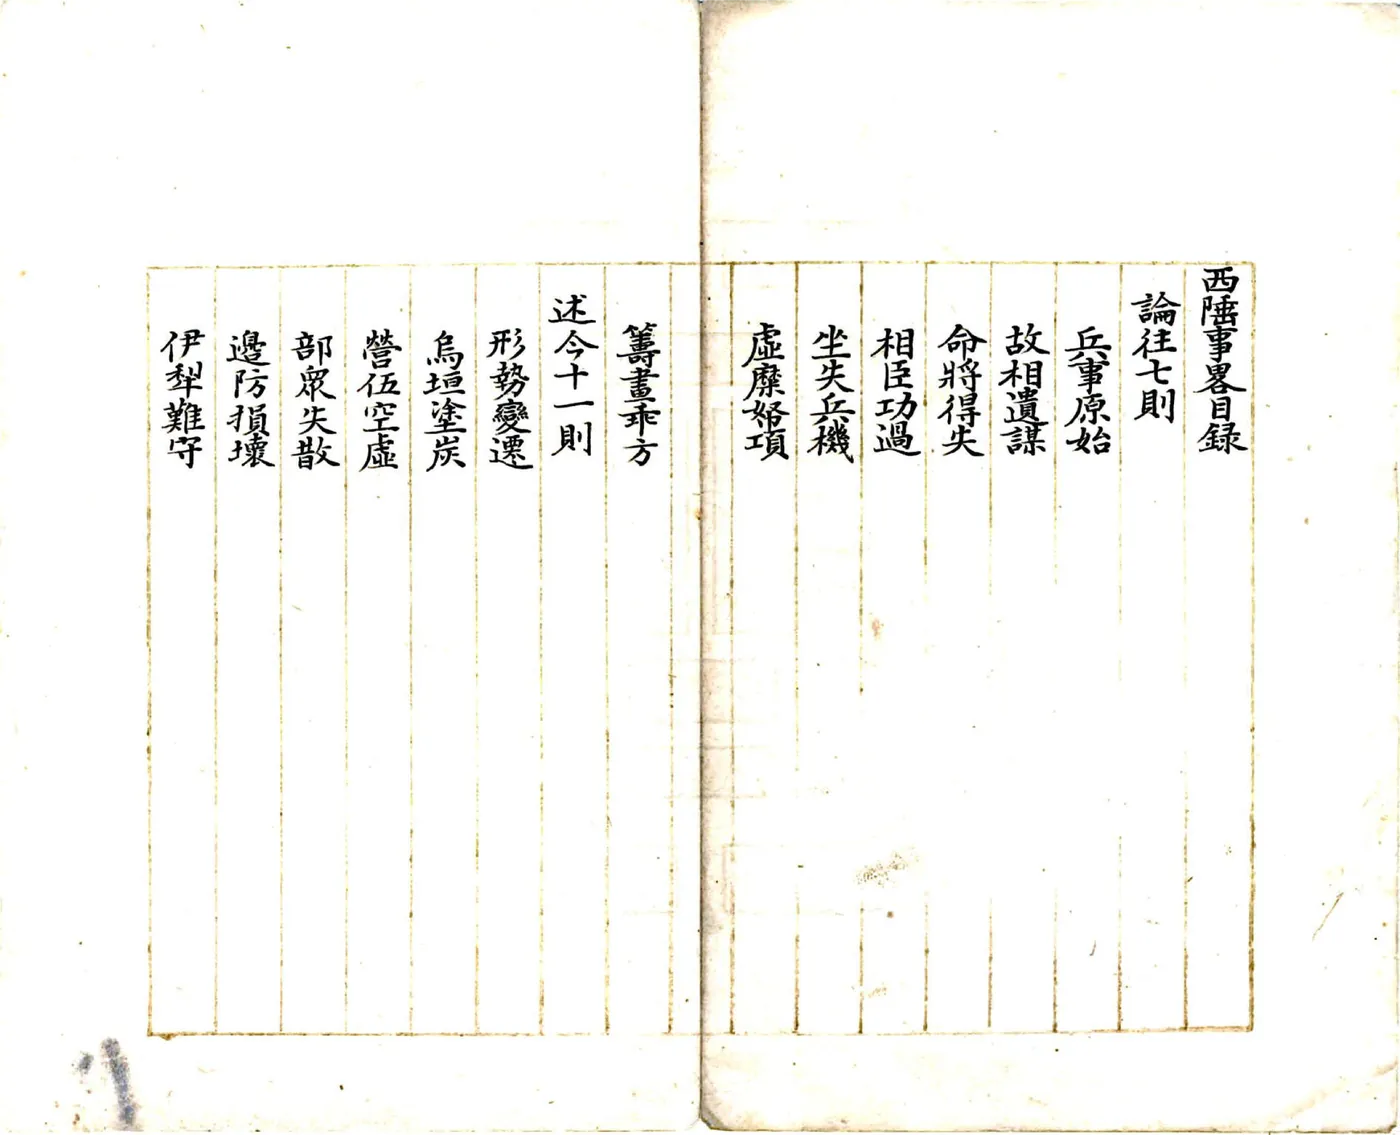 西陲事畧目録
論往七則
兵事原始
故相遺謀
命將得失
相臣功過
坐失兵機
虛糜帑項
籌畫乖方
述今十一則
形勢變遷
烏垣塗炭
營伍空虛
部眾失散
邊防損壞
伊犁難守